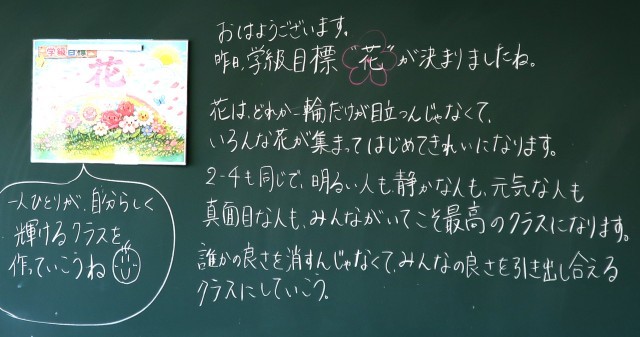 学級目標
花
おはようございます。
昨日、学級目標“花”が決まりましたね。
花は、どれか一輪だけが目立つんじゃなくて、
いろんな花が集まってはじめてきれいになります。
2-4も同じで、明るい人も静かな人も、元気な人も
真面目な人も、みんながいてこそ最高のクラスになります。
誰かの良さを消すんじゃなくて、みんなの良さを引き出し合える
クラスにしていこう。
一人ひとりが、自分らしく
輝けるクラスを
作っていこうね